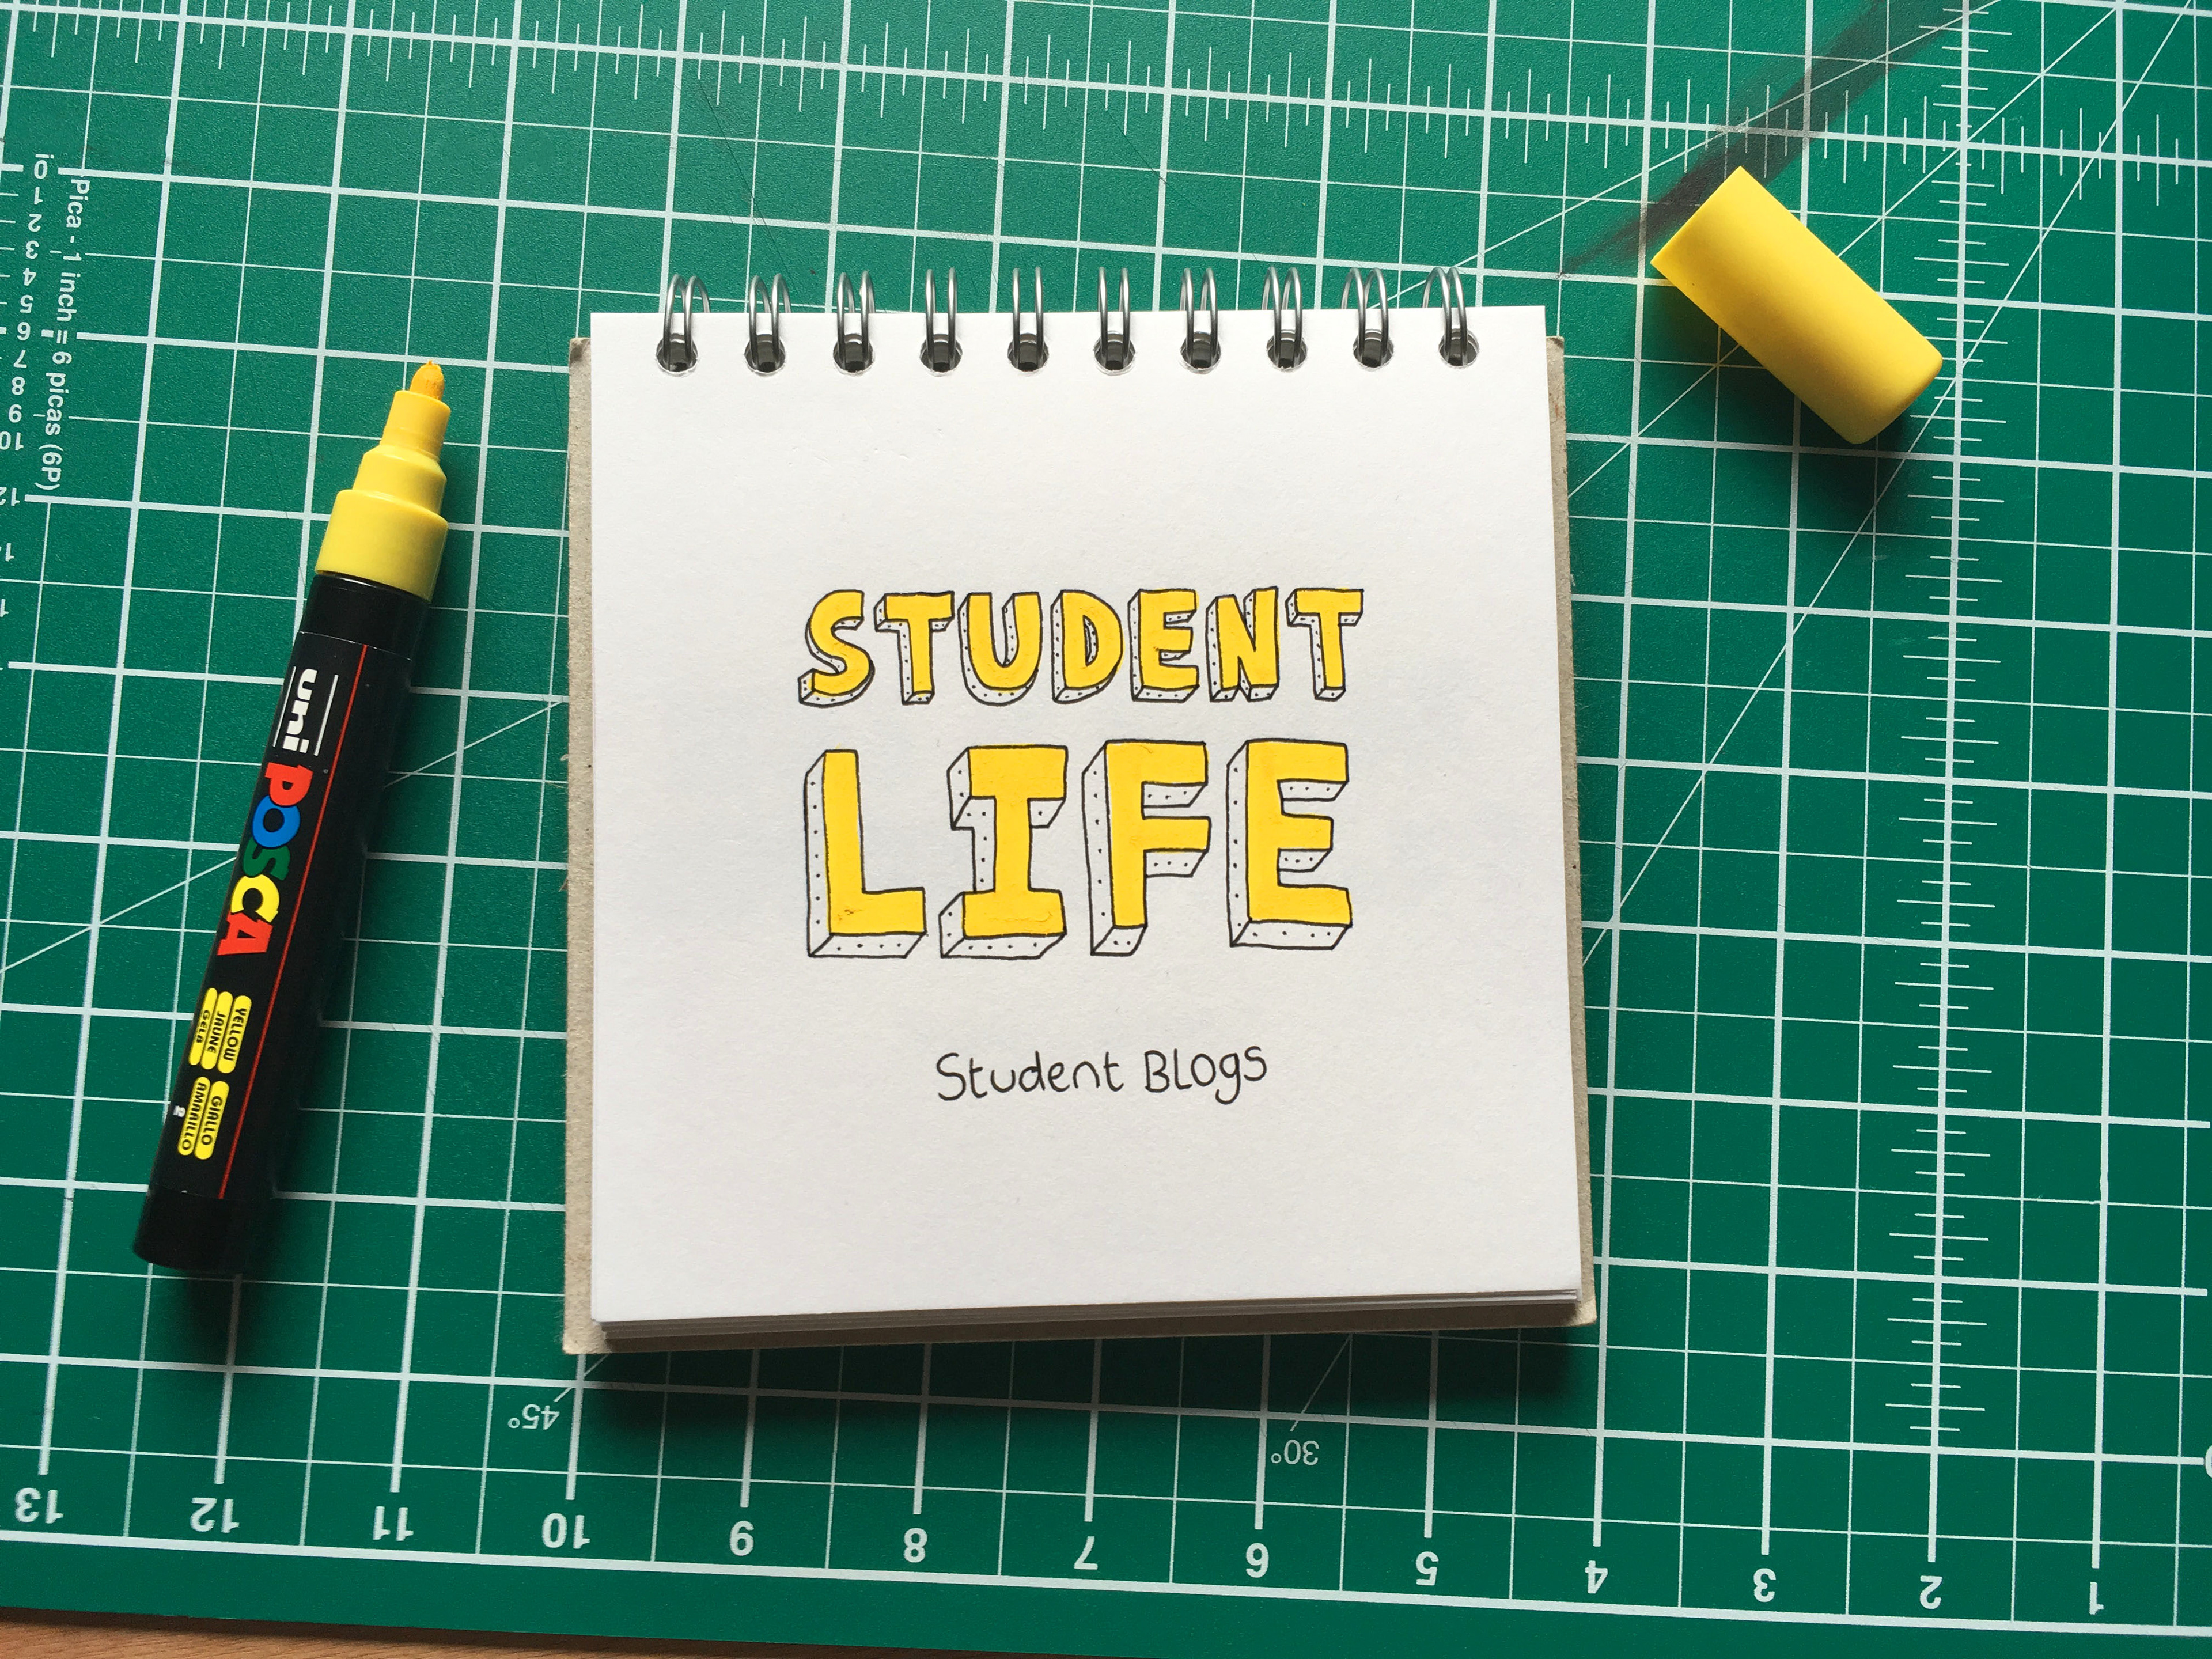 STUDENT
LIFE
Student Blogs
uni POSCA
YELLOW GIALLO
JAUNE AMARILLO
GELB
Pica - 1 inch = 6 picas (6P)
0
1
2
3
4
5
6
7
8
9
10
12
45°
30°
13 12 11 10 9 8 7 6 5 4 3 2 1